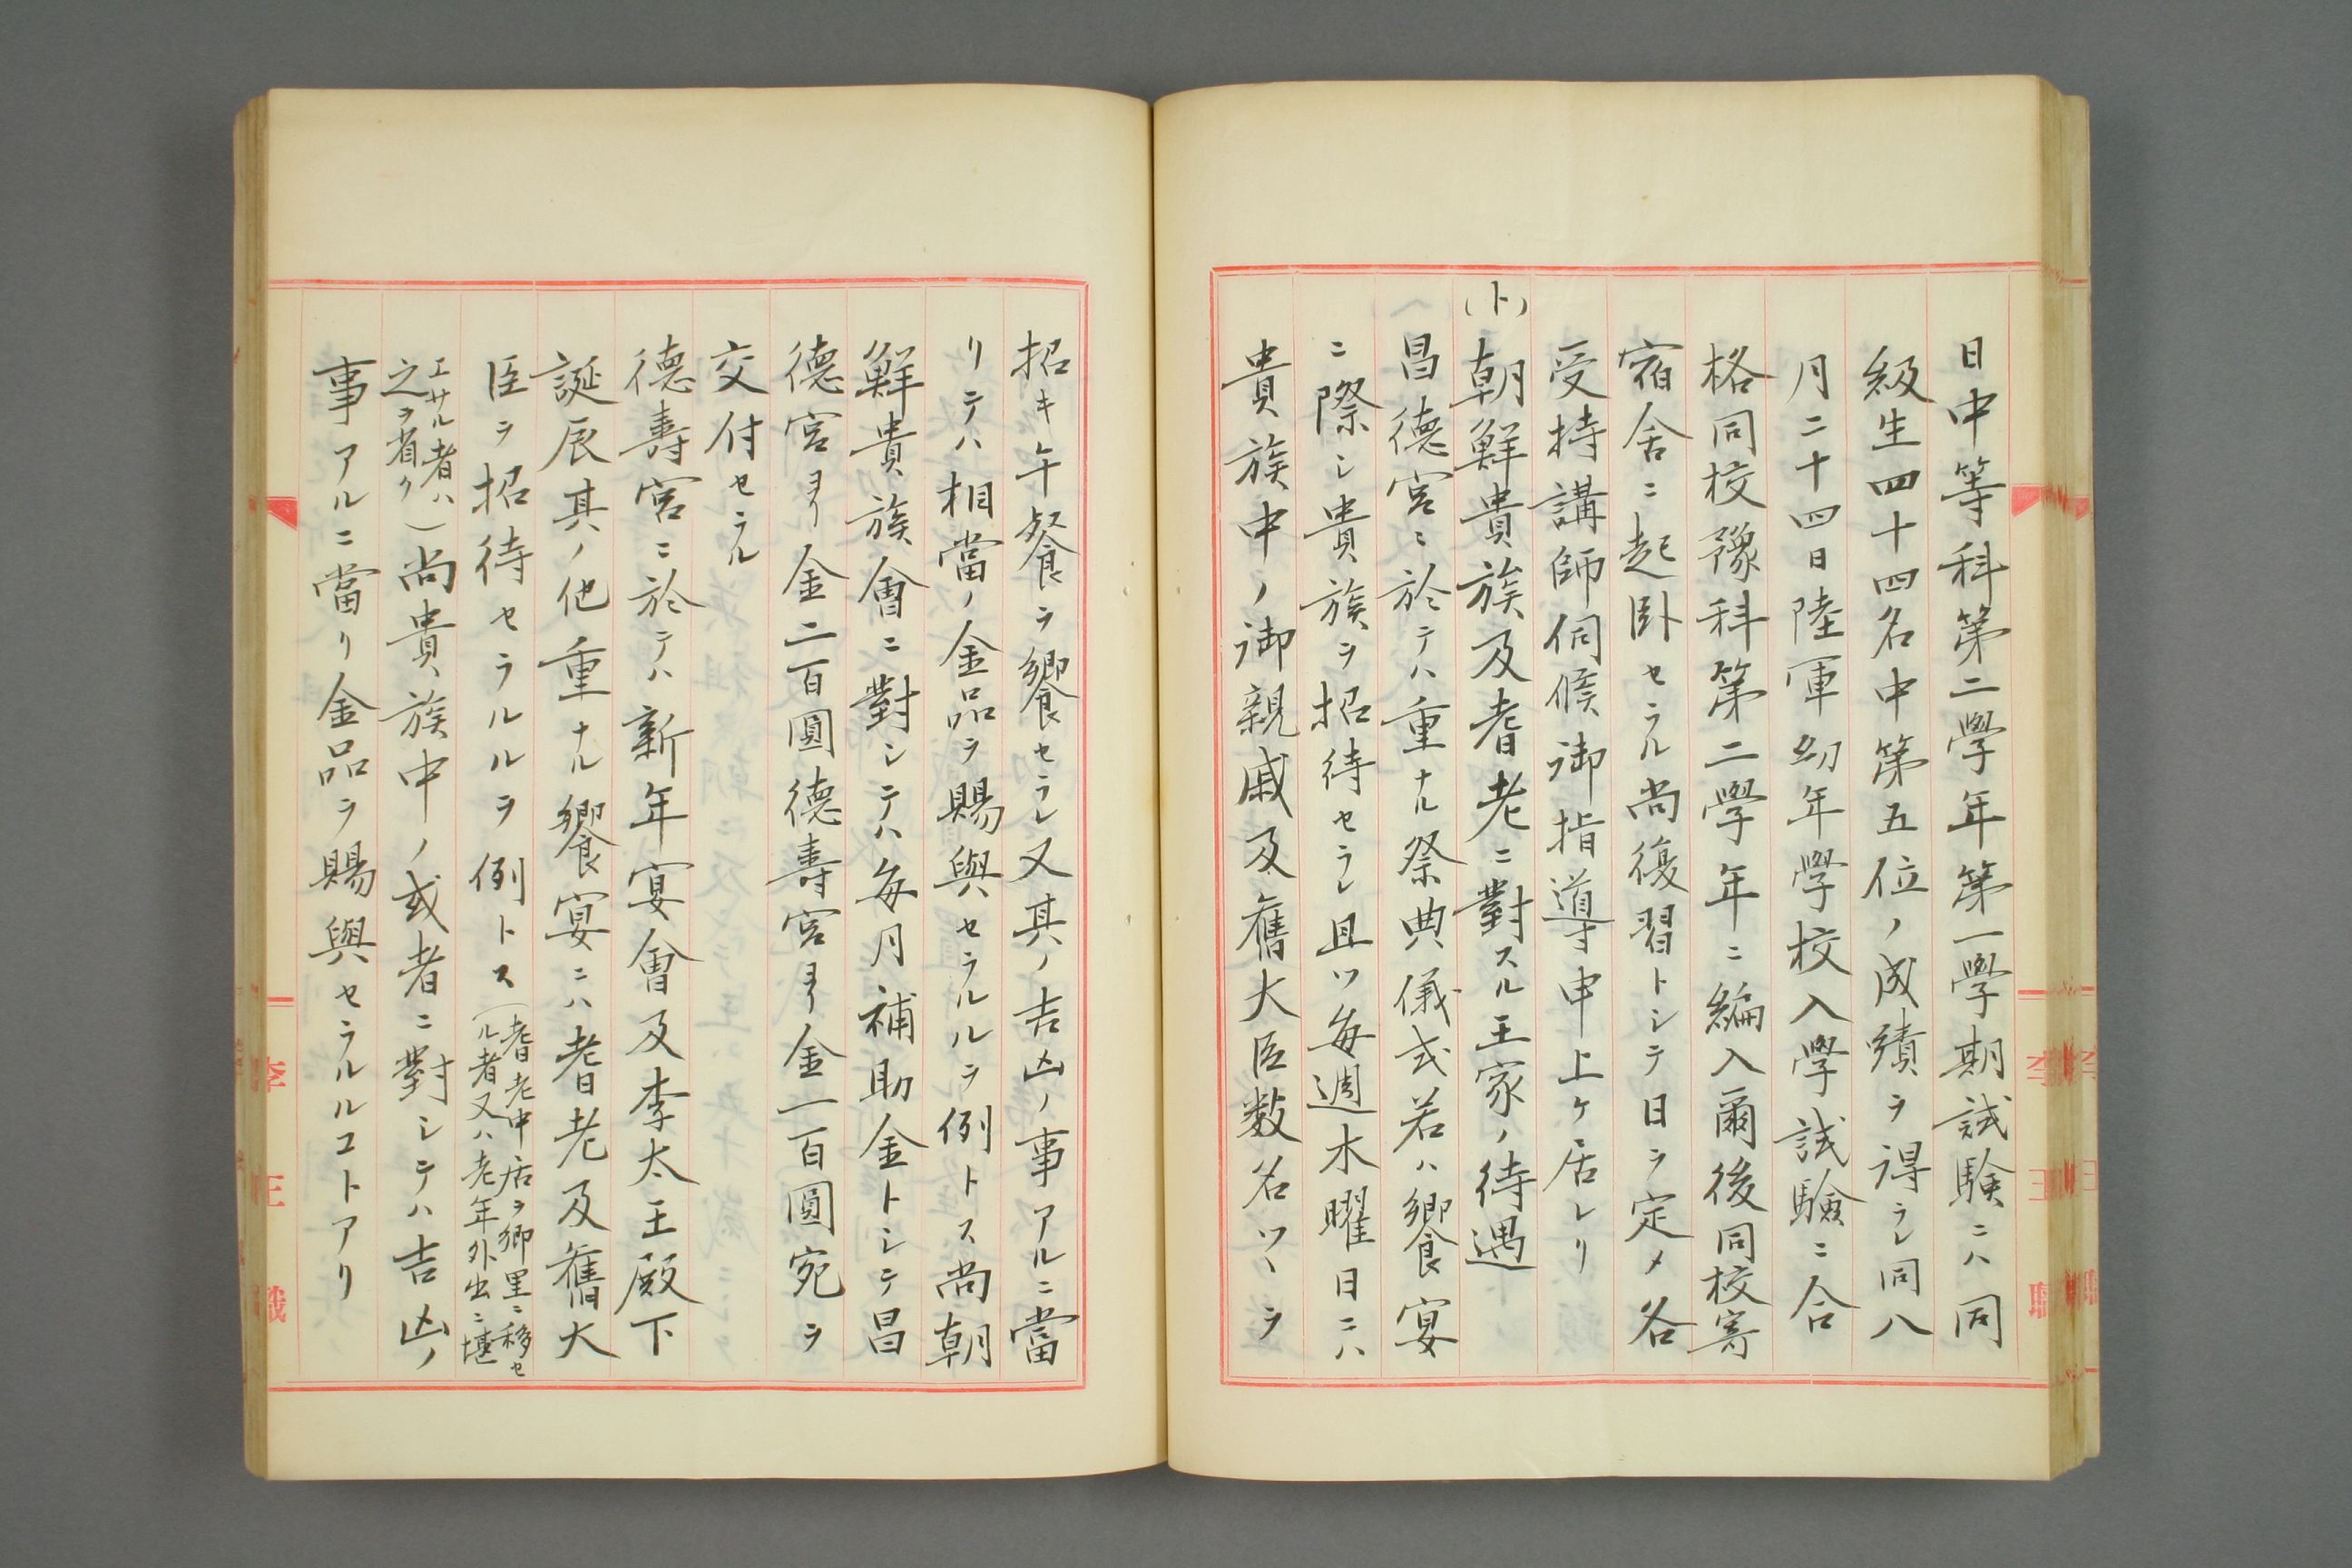 日中等科第二學年第一學期試驗ニハ同
級生四十四名中第五位ノ成績ヲ得ラレ同八
月二十四日陸軍幼年學校入學試驗ニ合
格同校豫科第二學年ニ編入爾後同校寄
宿舍ニ起臥セラル尚復習トシテ日ヲ定メ各
受持講師伺候御指導申上ケ居レリ
(ト)朝鮮貴族及耆老ニ對スル王家ノ待遇
昌德宮ニ於テハ重ナル祭典儀式若ハ饗宴
ニ際シ貴族ヲ招待セラレ且ツ每週木曜日ニハ
貴族中ノ御親戚及舊大臣数名ツヽヲ
招キ午餐ヲ饗セラレ又其ノ吉凶ノ事アルニ當
リテハ相當ノ金品ヲ賜與セラルルヲ例トス尚朝
鮮貴族會ニ對シテハ每月補助金トシテ昌
德宮ヨリ金二百圓德壽宮ヨリ金一百圓宛ヲ
交付セラル
德壽宮ニ於テハ新年宴會及李太王殿下
誕辰其ノ他重ナル饗宴ニハ耆老及舊大
臣ヲ招待セラルルヲ例トス(耆老中居ヲ鄉里ニ移セ
ル者又ハ老年外出ニ堪
エサル者ハ
之ヲ省ク)尚貴族中ノ或者ニ對シテハ吉凶ノ
事アルニ當リ金品ヲ賜與セラルルコトアリ
李王職